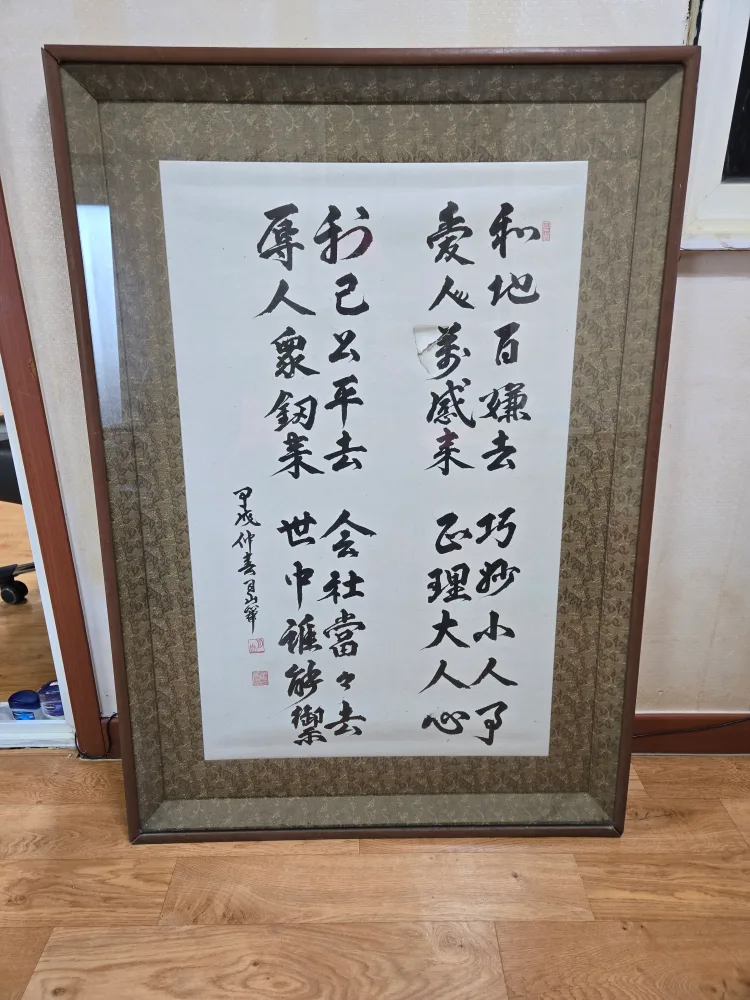 和地百嫌去 巧妙小人事
愛人萬感来 正理大人心
利己公平去 会社當々去
辱人衆釼来 世中誰能禦
甲戌仲春